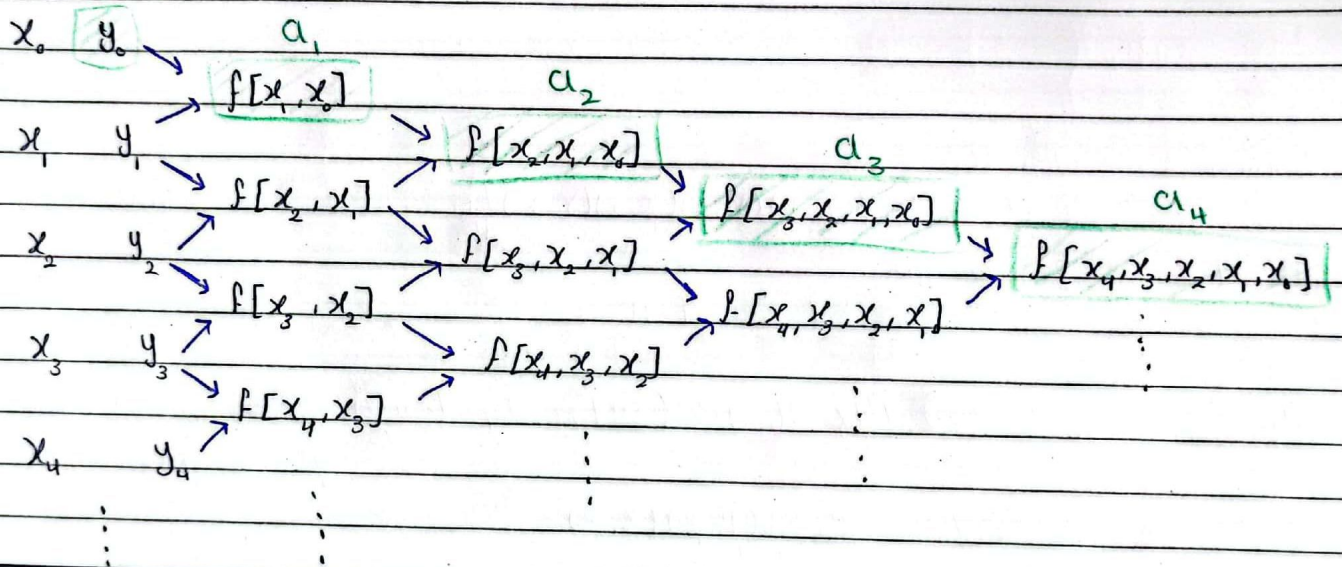 x₀ y₀ a₁
f[x₁,x₀] a₂
x₁ y₁ f[x₂,x₁,x₀] a₃
f[x₂,x₁] f[x₃,x₂,x₁,x₀] a₄
x₂ y₂ f[x₃,x₂,x₁] f[x₄,x₃,x₂,x₁,x₀]
f[x₃,x₂] f[x₄,x₃,x₂,x₁]
x₃ y₃ f[x₄,x₃,x₂]
f[x₄,x₃]
x₄ y₄